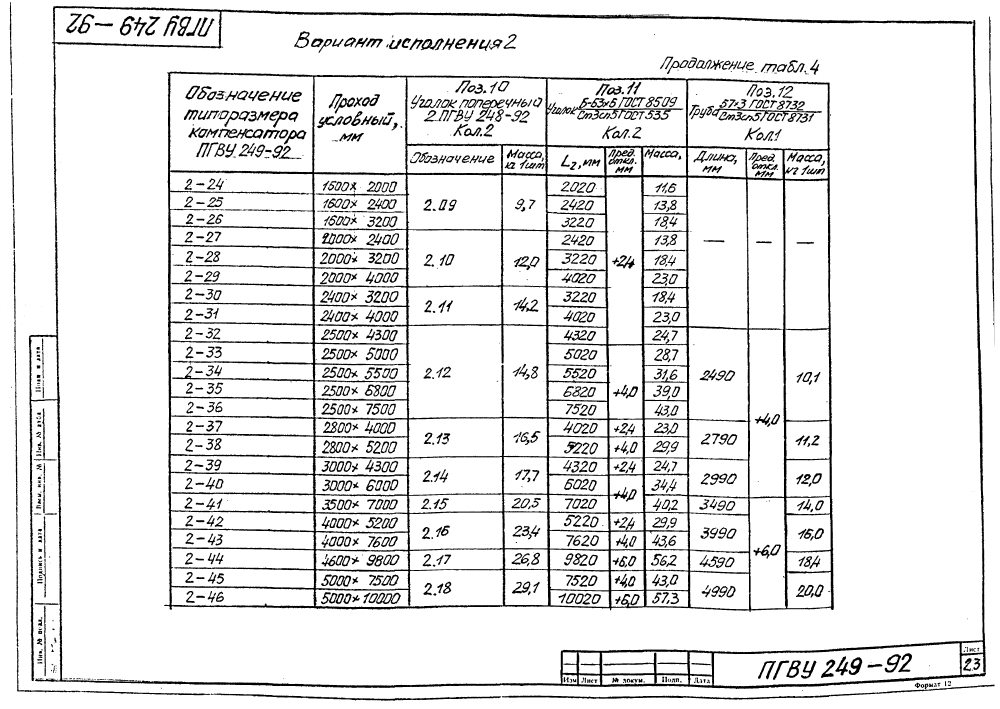 ПГВУ 249-92
Вариант исполнения 2
Продолжение табл. 4
Обозначение типоразмера компенсатора ПГВУ 249-92
Проход условный, мм
Поз. 10 Уголок поперечный 2 ПГВУ 248-92 Кол. 2
Поз. 11 Уголок Б-63×6 ГОСТ 8509 Ст3сп5 ГОСТ 535 Кол. 2
Поз. 12 Труба 57×3 ГОСТ 8732 Ст3сп5 ГОСТ 8731 Кол. 1
Обозначение Масса, кг 1шт L2, мм Пред. откл. мм Масса, Длина, мм Пред. откл. мм Масса, кг 1шт
2-24 1600× 2000 2.09 9,7 2020 +2,4 11,6 — — —
2-25 1600× 2400 2420 13,8
2-26 1600× 3200 3220 18,4
2-27 2000× 2400 2.10 12,0 2420 13,8
2-28 2000× 3200 3220 18,4
2-29 2000× 4000 4020 23,0
2-30 2400× 3200 2.11 14,2 3220 18,4
2-31 2400× 4000 4020 23,0
2-32 2500× 4300 2.12 14,8 4320 24,7 2490 +4,0 10,1
2-33 2500× 5000 5020 +4,0 28,7
2-34 2500× 5500 5520 31,6
2-35 2500× 6800 6820 39,0
2-36 2500× 7500 7520 43,0
2-37 2800× 4000 2.13 16,5 4020 +2,4 23,0 2790 11,2
2-38 2800× 5200 5220 +4,0 29,9
2-39 3000× 4300 2.14 17,7 4320 +2,4 24,7 2990 12,0
2-40 3000× 6000 6020 +4,0 34,4
2-41 3500× 7000 2.15 20,5 7020 40,2 3490 +6,0 14,0
2-42 4000× 5200 2.16 23,4 5220 +2,4 29,9 3990 16,0
2-43 4000× 7600 7620 +4,0 43,6
2-44 4600× 9800 2.17 26,8 9820 +6,0 56,2 4590 18,4
2-45 5000× 7500 2.18 29,1 7520 +4,0 43,0 4990 20,0
2-46 5000×10000 10020 +6,0 57,3
Инв. № подл.
Подпись и дата
Взам. инв. №
Инв. № дубл
Подп. и дата
Изм Лист № докум. Подп. Дата
ПГВУ 249-92
Лист
23
Формат 12